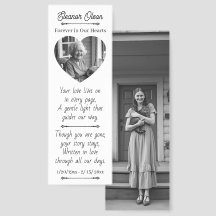 Eleanor Olson
Forever In Our Hearts
Your love lives on
in every page,
A gentle light that
guides our way.
Though you are gone,
your story stays,
Written in love
through all our days.